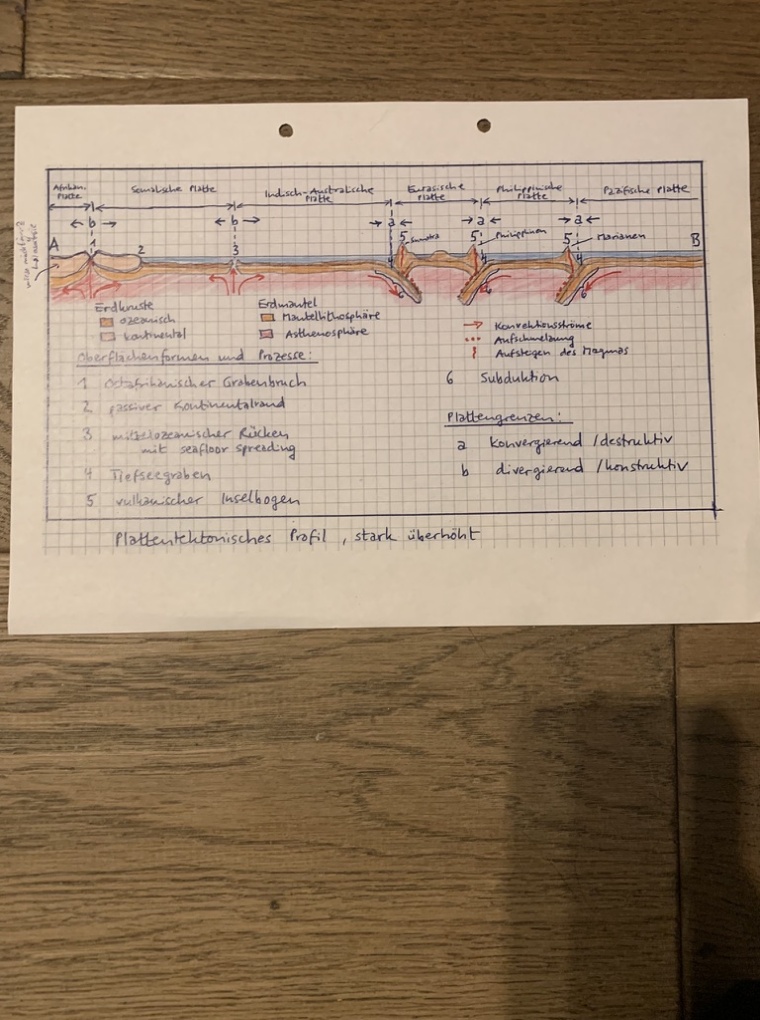 Afrikan. Platte
Somalische Platte
Indisch-Australische Platte
Eurasische Platte
Philippinische Platte
Pazifische Platte
b b a a a
A 1 2 3 4 5 Sumatra 5 Philippinen 4 5 Marianen 4 B
6 6 6
Erdkruste
ozeanisch
kontinental
Erdmantel
Mantellithosphäre
Asthenosphäre
Konvektionsströme
Aufschmelzung
Aufsteigen des Magmas
Oberflächenformen und Prozesse:
1 Ostafrikanischer Grabenbruch
2 passiver Kontinentalrand
3 mittelozeanischer Rücken
mit seafloor spreading
4 Tiefseegraben
5 vulkanischer Inselbogen
6 Subduktion
Plattengrenzen:
a konvergierend / destruktiv
b divergierend / konstruktiv
Plattentektonisches Profil, stark überhöht